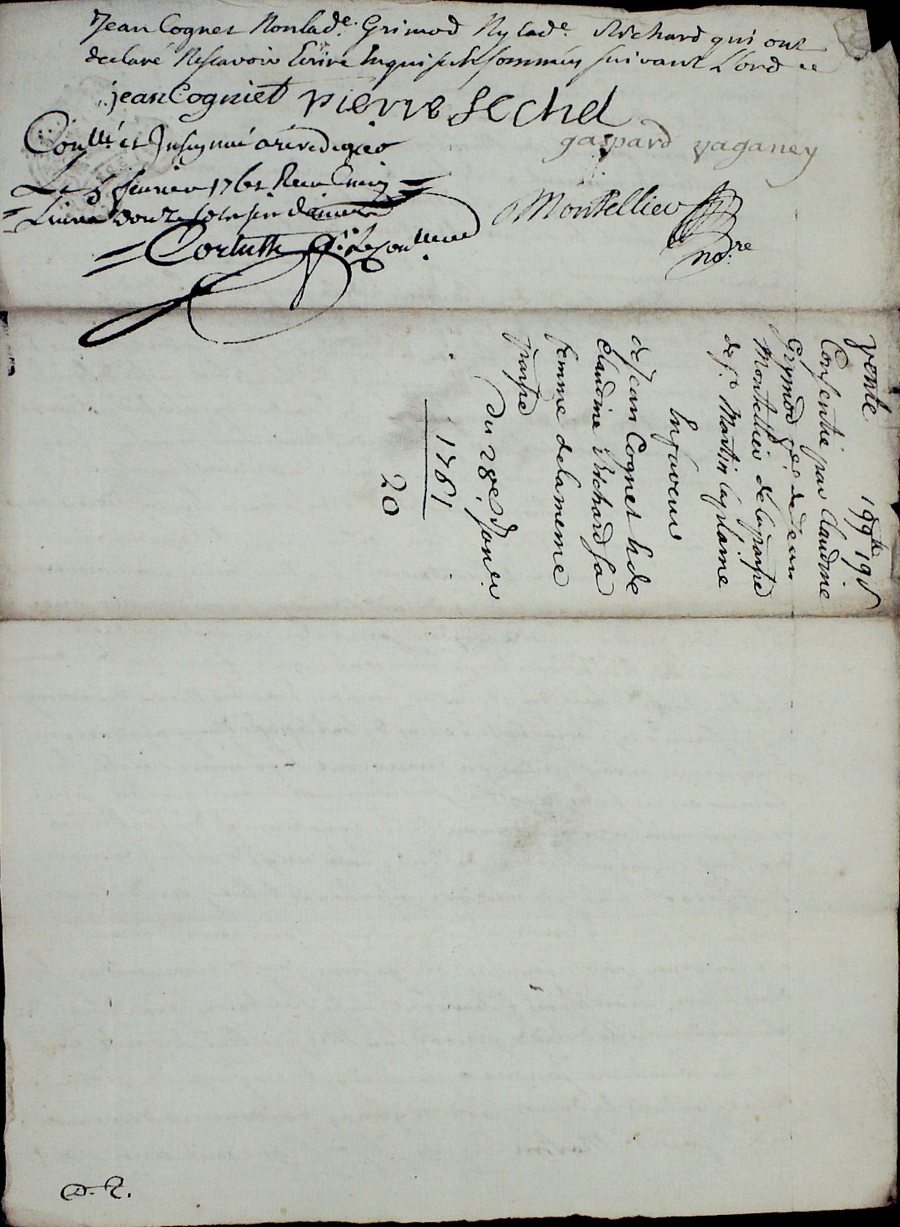 Jean Cognet Non lad.e Grimod Ny lad.e Richard qui ont
declaré Ne scavoir Ecrire Enquis et sommés suivant L'ord.ce
jean Cogniet pierre sechel
gaspard vaganey
Con.llé et Insinué a rivedegier
Le 5 fevrier 1761 Recu Cinq
Livres douze sols six deniers
Montellier
no.re
vente
Consentie par Claudine
Grymod de Jean
Montellier de la parsse
de s.t Martin la plaine
En faveur
de Jean Cognet h de
Claudine Richard sa
femme de la meme
parsse
Du 28.e Janv.r
1761
20